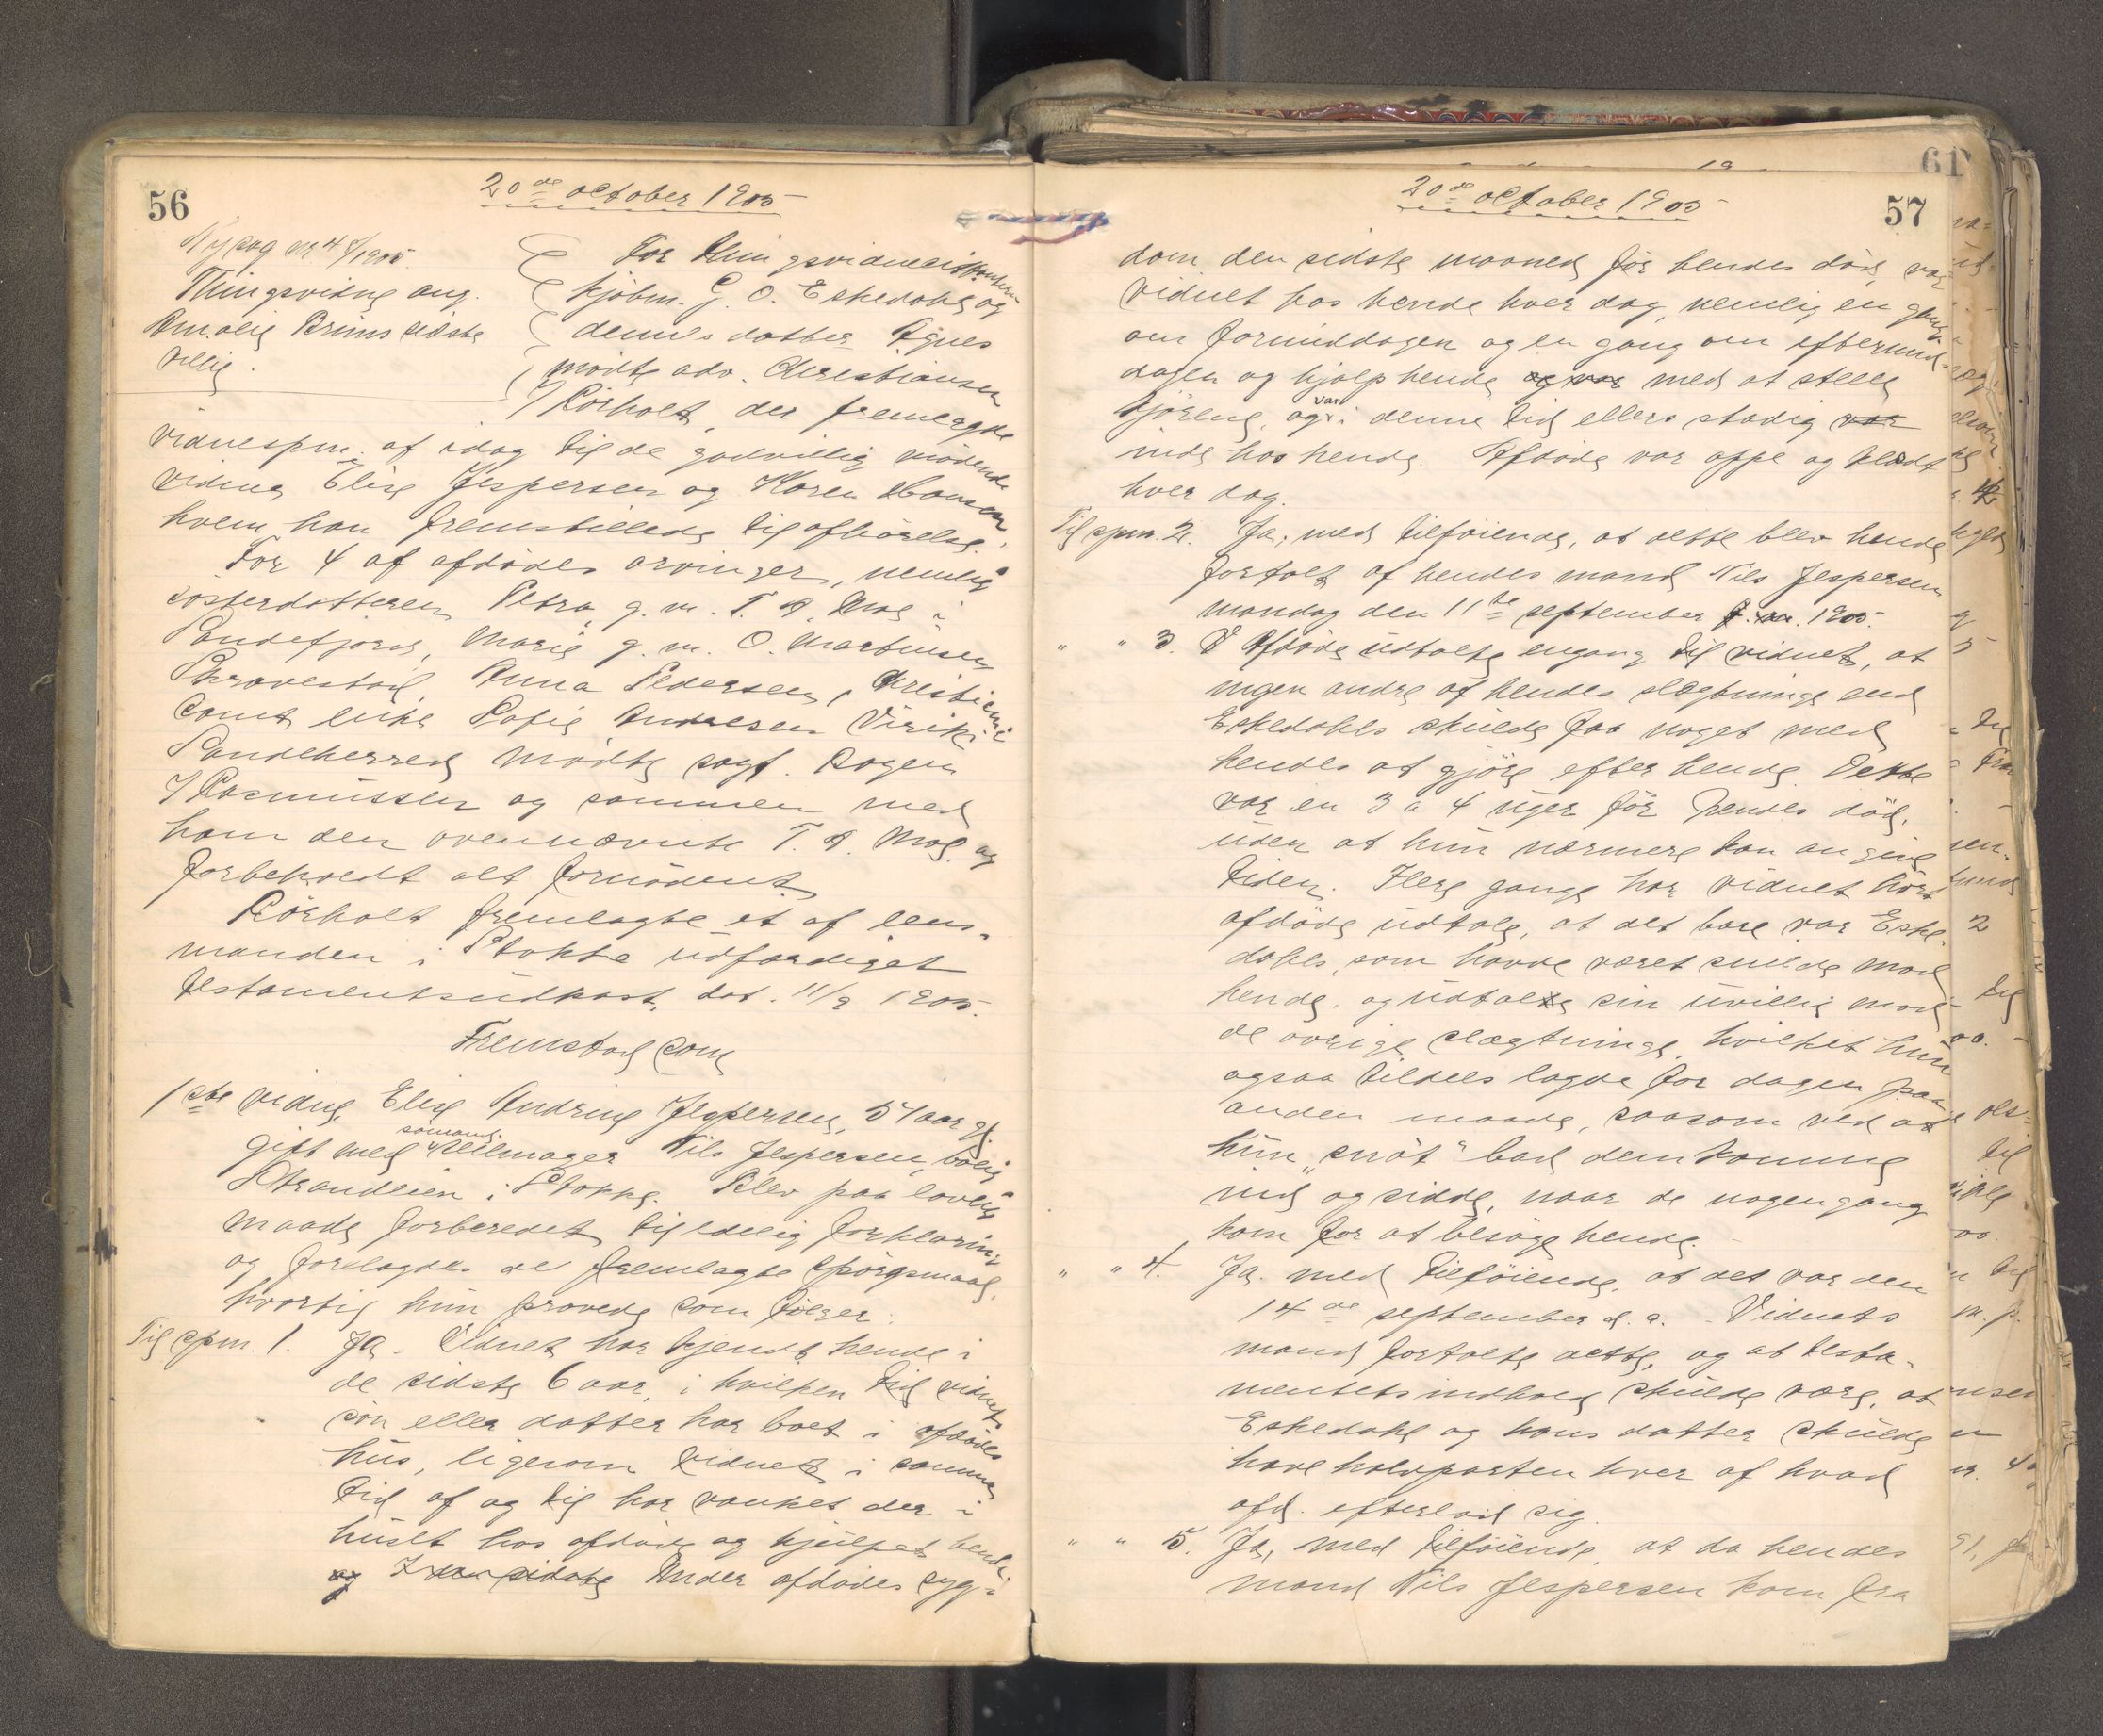 56
20de october 1905
Ny sag nr. 4 8/1905.
Thingsvidne ang.
Amalie Bruns sidste
villie.
For thingsvidneisthaveren
kjøbm. G. O. Eskedahl og
dennes datter Agnes
mødte adv. Christiansen
v/ Rörholt, der fremlagde
vidnespm. af idag til de godvillig mødende
vidner Elise Jespersen og Karen Hansen
hvem han fremstillede til afhörelse.
For 4 af afdödes arvinger, nemlig
sösterdöttrene Petra, g. m. T. A. Moe i
Sandefjord, Marie g. m. O. Martinsen
Skravestad, Anna Pedersen, Christiania
samt enke Sofie Andersen Virik i
Sandeherred mødte sagf. Bogen
v/ Rasmussen og sammen med
ham den ovennævnte T. A. Moe og
forbeholdt alt fornödent.
Rörholt fremlagte et af lens-
manden i Stokke udfærdiget
testamentsudkast, dat. 11/9 1905.
Fremstod som
1ste vidne Elise Andrine Jespersen, 51 aar gl.
gift med sömand. Nils Jespersen, bolig
Strandeien i Stokke. Blev paa lovlig
maade forberedet til edelig forklaring
og forelagdes de fremlagte spörgsmaal,
hvortil hun provede som fölger:
Til spm. 1. Ja. Vidnet har kjendt hende i
de sidste 6 aar, i hvilken tid vidnets
sön eller datter har boet i afdödes
hus, ligesom vidnet i samme
tid af og til har vanket der i
huset hos afdöde og hjulpet hende.
og I den sidste Under afdödes syg-
61
57
20de october 1905
dom den sidste maaned för hendes död, var
vidnet hos hende hver dag, nemlig en gang
om formiddagen og en gang om eftermid-
dagen og hjalp hende og var med at stelle
kjörene, og var i denne tid ellers stadig var
inde hos hende. Afdöde var oppe og klædt
hver dag.
Til spm. 2. Ja, med tilföiende, at dette blev hende
fortalt af hendes mand Nils Jespersen
mandag den 11te september 1905.
" " 3. Afdöde udtalte engang til vidnet, at
ingen andre af hendes slægtninge end
Eskedahls skulde faa noget med
hendes at gjöre efter hende. Dette
var en 3 a 4 uger för hendes död,
uden at hun nærmere kan angive
tiden. Flere gange har vidnet hört
afdöde udtale, at det bare var Eske-
dahls, som havde været snilde mod
hende, og udtalte sin uvillie mod
de övrige slægtninge, hvilket hun
ogsaa tildels lagde for dagen paa
anden maade, saasom ved at
hun "snöt" bad dem komme
ind og sidde, naar de nogengang
kom for at besöge hende.
" " 4. Ja. med tilföiende, at det var den
14de september d. a. - Vidnets
mand fortalte dette, og at testa-
mentets indhold skulde være, at
Eskedahl og hans datter skulde
have halvparten hver af hvad
afd. efterlod sig.
" " 5. Ja, med tilföiende, at da hendes
mand Nils Jespersen kom fra